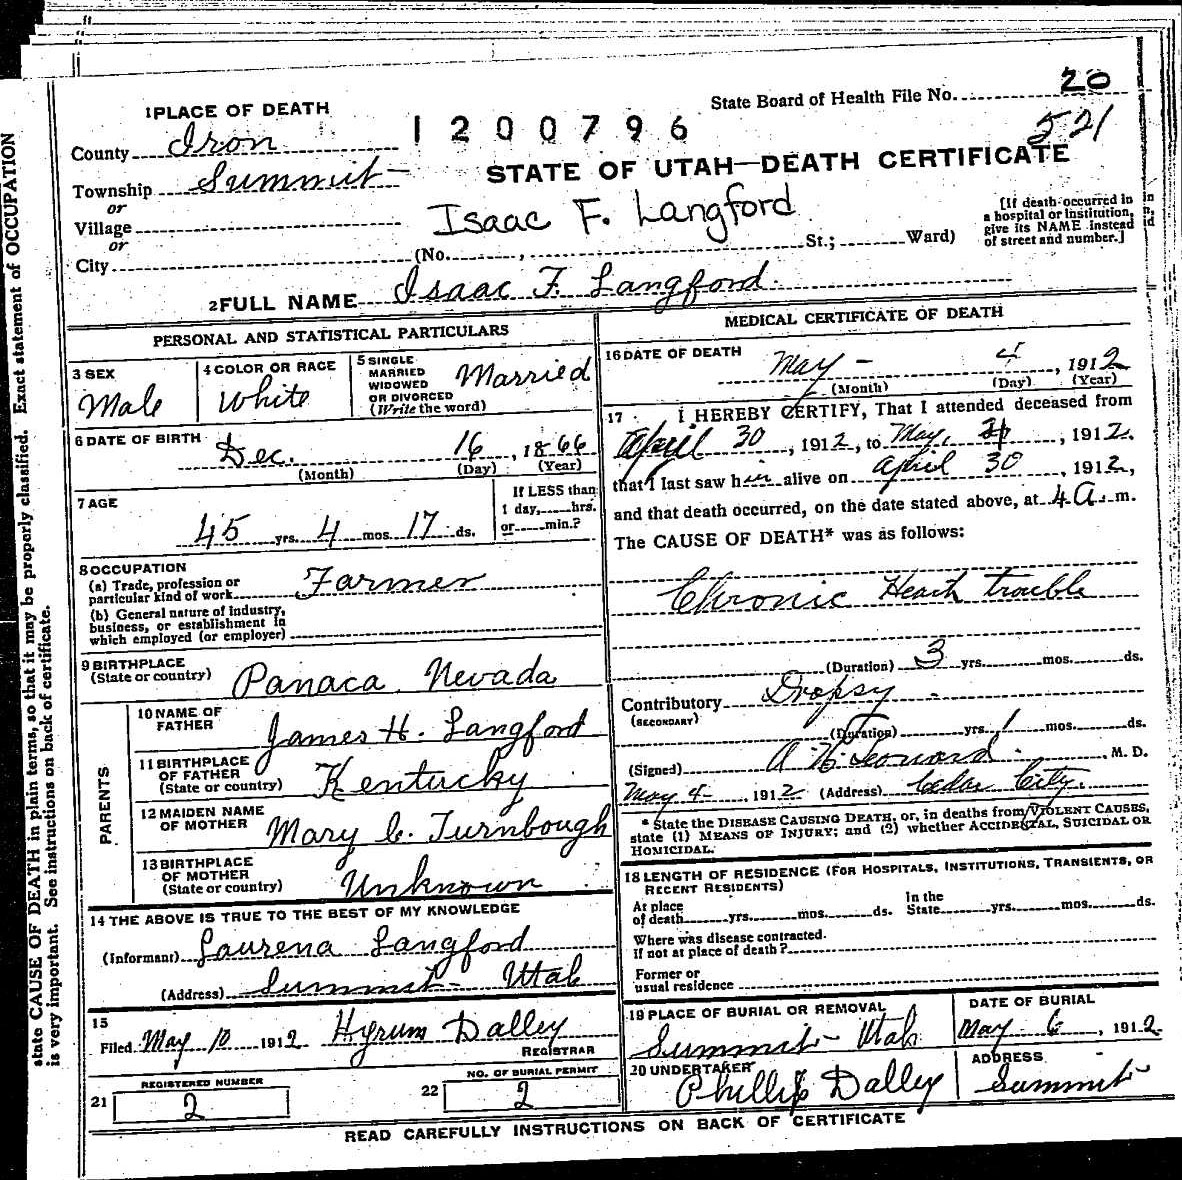 1 PLACE OF DEATH
State Board of Health File No. 20
521
County Iron
1200796
STATE OF UTAH—DEATH CERTIFICATE
Township Summit
or
Village
or
City
Isaac F. Langford
(No. , St.; Ward)
[If death occurred in
a hospital or institution,
give its NAME instead
of street and number.]
2 FULL NAME Isaac F. Langford.
PERSONAL AND STATISTICAL PARTICULARS
3 SEX
Male
4 COLOR OR RACE
White
5 SINGLE
MARRIED
WIDOWED
OR DIVORCED
(Write the word)
Married
6 DATE OF BIRTH
Dec. 16, 1866
(Month) (Day) (Year)
7 AGE
45 yrs. 4 mos. 17 ds.
If LESS than
1 day, hrs.
or min.?
8 OCCUPATION
(a) Trade, profession or
particular kind of work Farmer
(b) General nature of industry,
business, or establishment in
which employed (or employer)
9 BIRTHPLACE
(State or country) Panaca, Nevada
PARENTS
10 NAME OF
FATHER James H. Langford
11 BIRTHPLACE
OF FATHER
(State or country) Kentucky
12 MAIDEN NAME
OF MOTHER Mary C. Turnbough
13 BIRTHPLACE
OF MOTHER
(State or country) Unknown
14 THE ABOVE IS TRUE TO THE BEST OF MY KNOWLEDGE
(Informant) Laurena Langford
(Address) Summit Utah
15
Filed May 10 1912 Hyrum Dalley
REGISTRAR
21 REGISTERED NUMBER
2
22 NO. OF BURIAL PERMIT
2
MEDICAL CERTIFICATE OF DEATH
16 DATE OF DEATH
May - 4, 1912
(Month) (Day) (Year)
17 I HEREBY CERTIFY, That I attended deceased from
April 30, 1912, to May, , 1912.
that I last saw him alive on April 30, 1912,
and that death occurred, on the date stated above, at 4 A. m.
The CAUSE OF DEATH* was as follows:
Chronic Heart trouble
(Duration) 3 yrs. mos. ds.
Contributory Dropsy
(SECONDARY)
(Duration) yrs. 1 mos. ds.
(Signed) A. N. Leonard. M. D.
May 4, 1912 (Address) Cedar City.
* State the DISEASE CAUSING DEATH, or, in deaths from VIOLENT CAUSES,
state (1) MEANS OF INJURY; and (2) whether ACCIDENTAL, SUICIDAL OR
HOMICIDAL.
18 LENGTH OF RESIDENCE (FOR HOSPITALS, INSTITUTIONS, TRANSIENTS, OR
RECENT RESIDENTS)
At place
of death yrs. mos. ds.
In the
State yrs. mos. ds.
Where was disease contracted.
If not at place of death?
Former or
usual residence
19 PLACE OF BURIAL OR REMOVAL
Summit Utah
DATE OF BURIAL
May 6, 1912
20 UNDERTAKER
Phillip Dalley
ADDRESS
Summit
READ CAREFULLY INSTRUCTIONS ON BACK OF CERTIFICATE
state CAUSE OF DEATH in plain terms, so that it may be properly classified. Exact statement of OCCUPATION
is very important. See instructions on back of certificate.